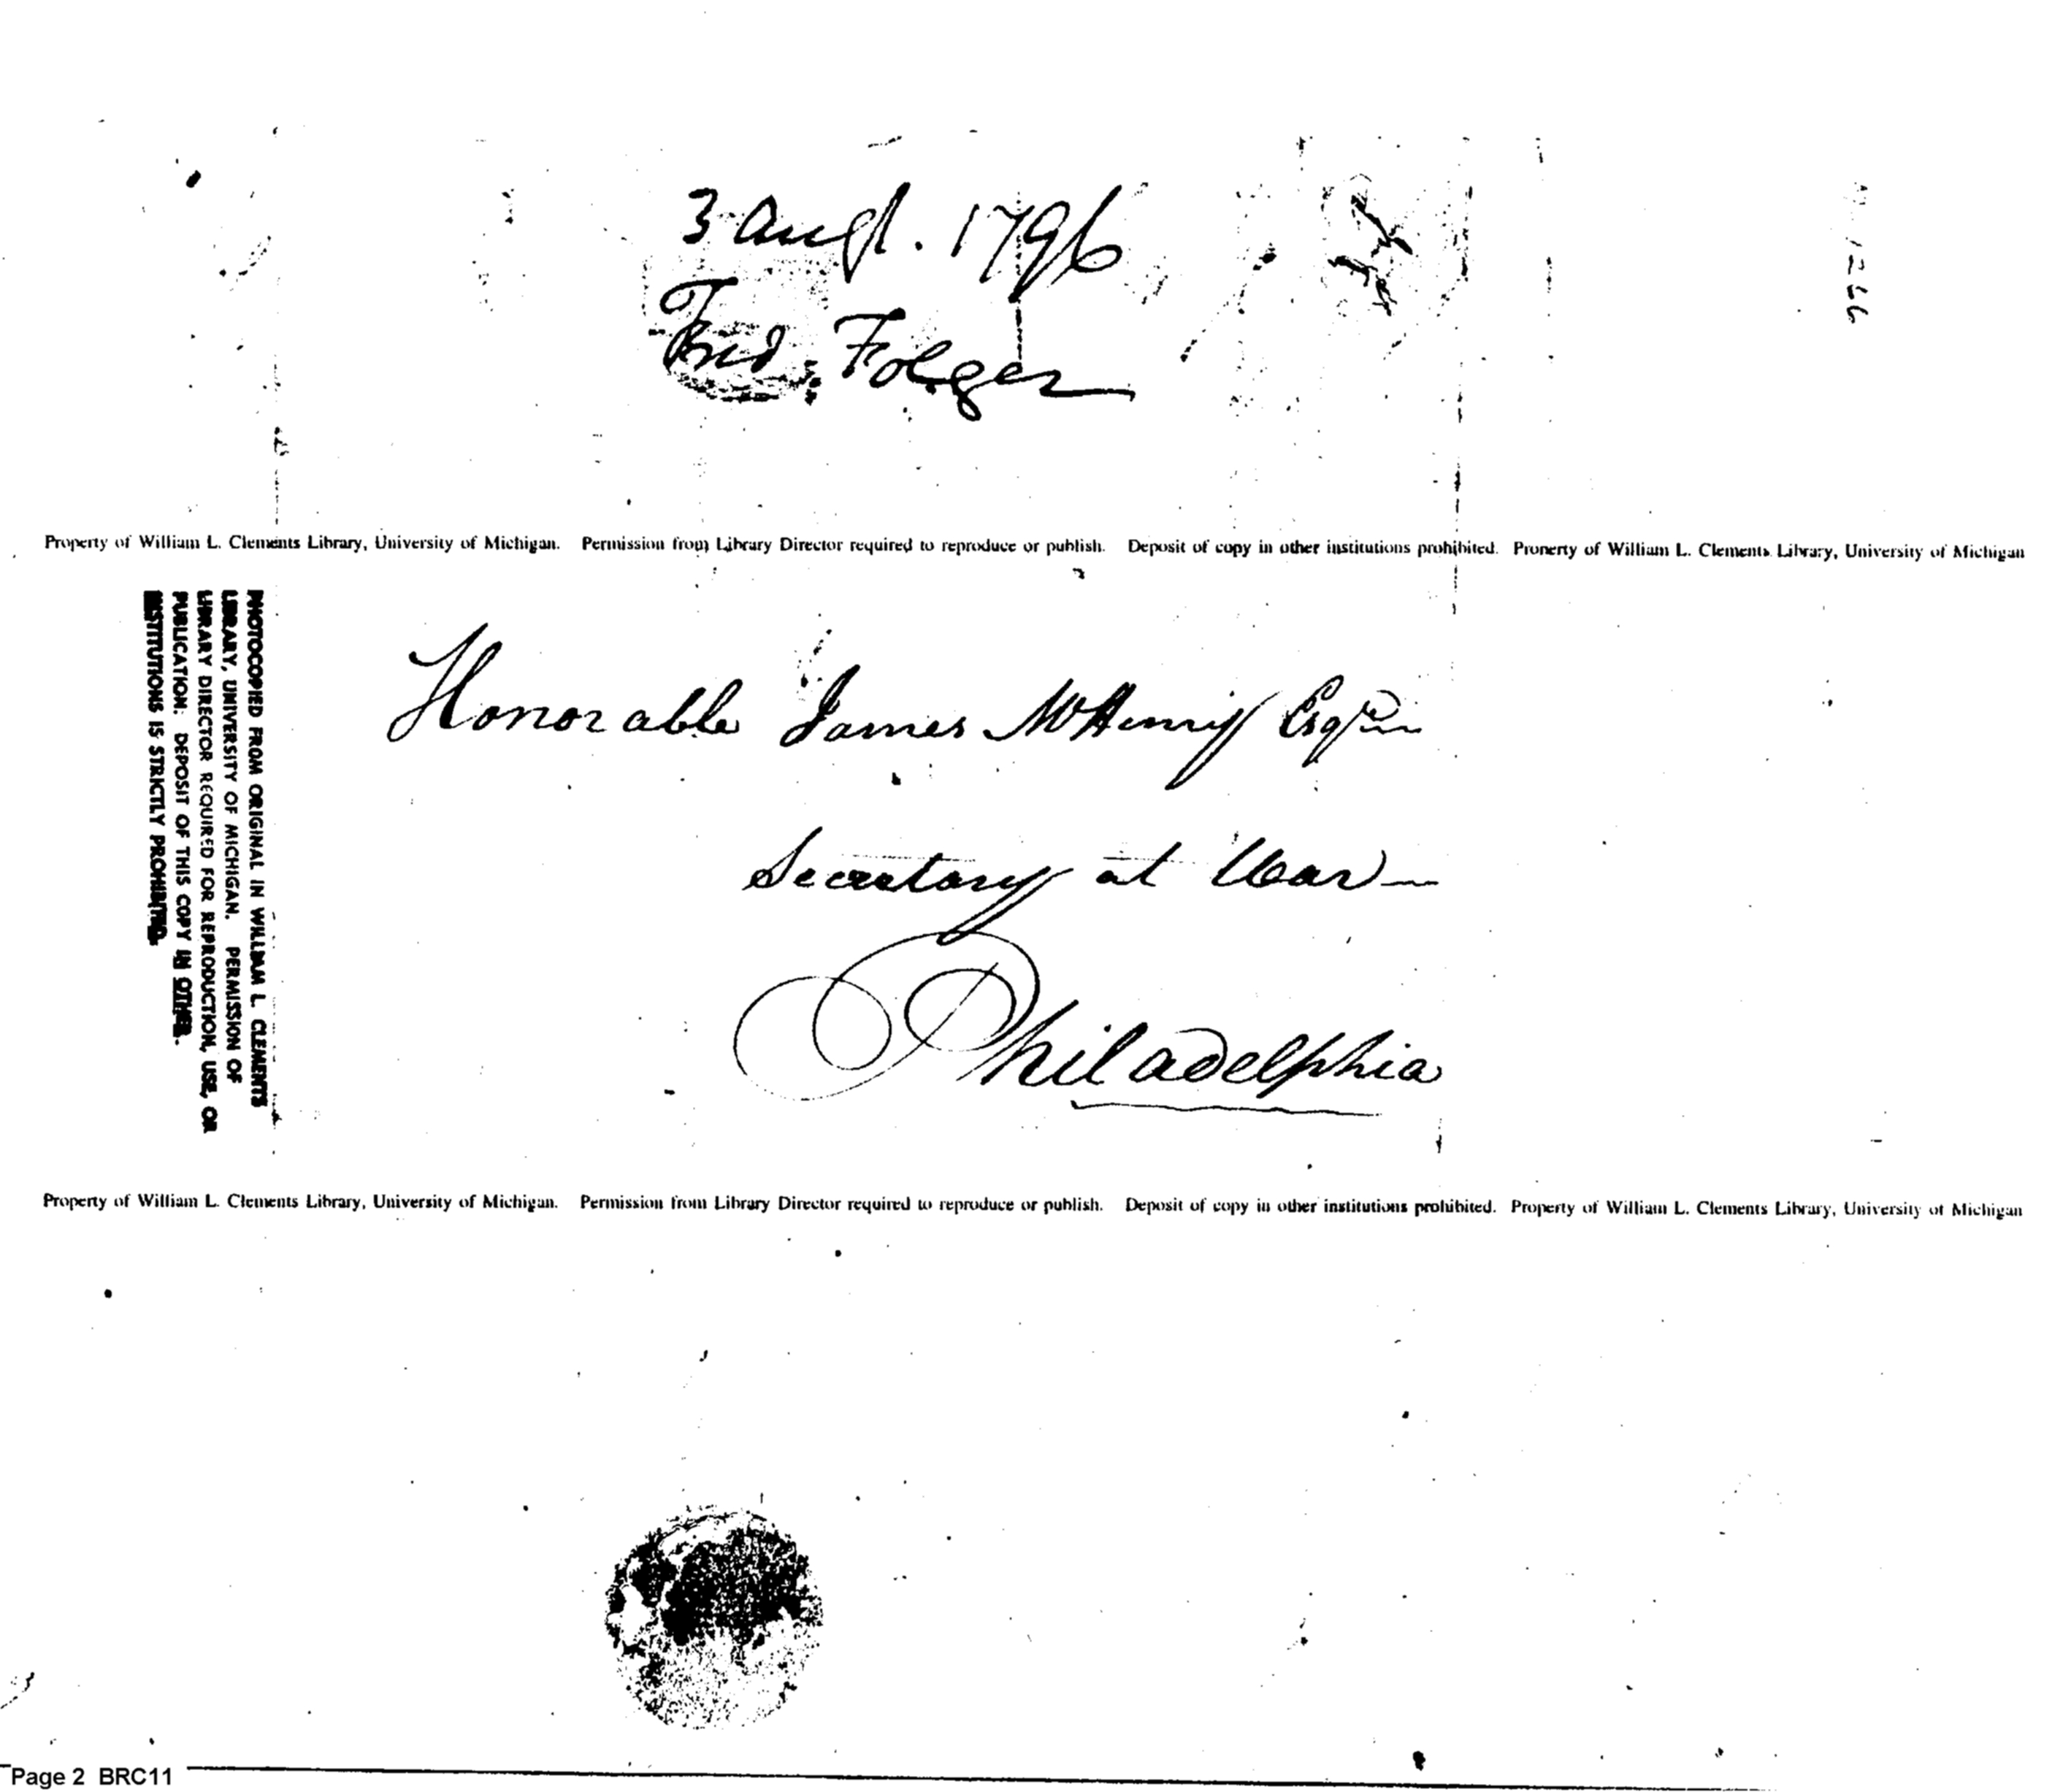 3 Augt. 1796
Fred. Folger
Property of William L. Clements Library, University of Michigan. Permission from Library Director required to reproduce or publish. Deposit of copy in other institutions prohibited. Property of William L. Clements Library, University of Michigan
PHOTOCOPIED FROM ORIGINAL IN WILLIAM L. CLEMENTS
LIBRARY, UNIVERSITY OF MICHIGAN. PERMISSION OF
LIBRARY DIRECTOR REQUIRED FOR REPRODUCTION, USE, OR
PUBLICATION: DEPOSIT OF THIS COPY IN OTHER
INSTITUTIONS IS STRICTLY PROHIBITED.
Honorable James McHenry Esqr
Secretary at War—
Philadelphia
Property of William L. Clements Library, University of Michigan. Permission from Library Director required to reproduce or publish. Deposit of copy in other institutions prohibited. Property of William L. Clements Library, University of Michigan
Page 2 BRC11